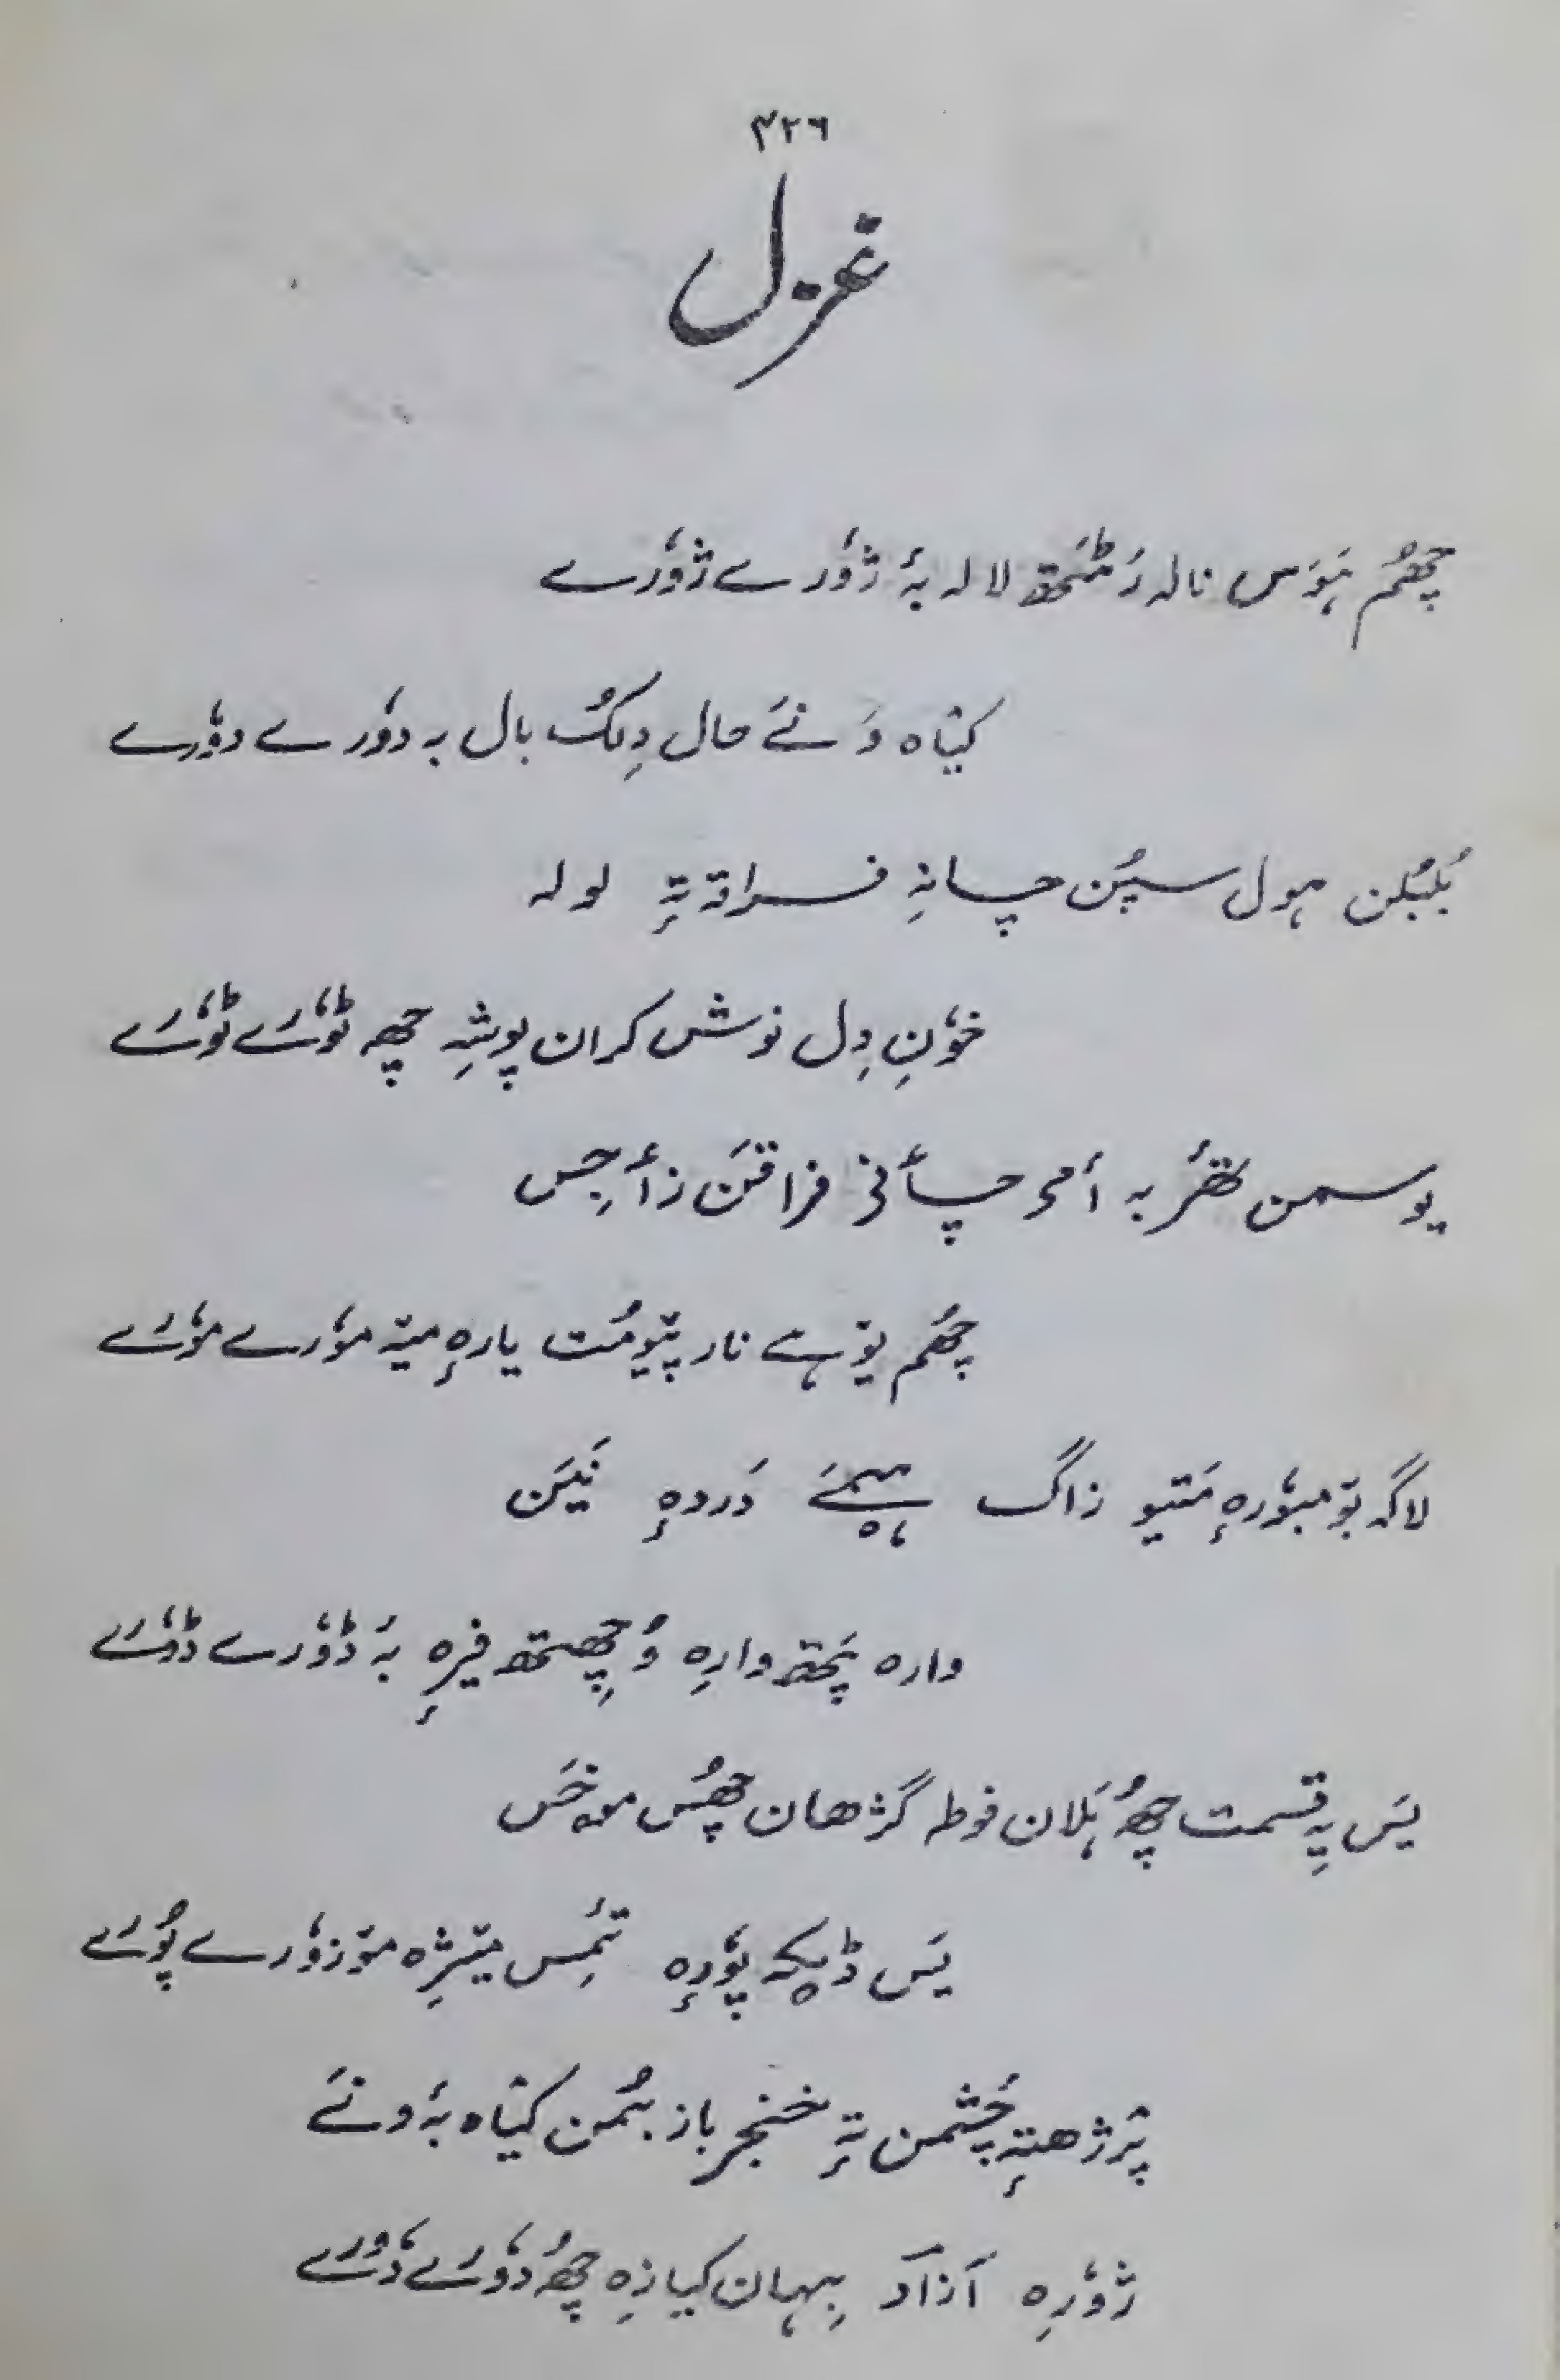 ۳۲٦
غزل
چھُم ہَوَس نالہ رَٹَتھ لالہ بہٕ ژوٗرے ژوٗرے
کیٛاہ وَنے حال دِلُک بال بہ دوٗرے دوٗرے
بُلبُلن ہول سپُن چانہِ فراقہ تہٕ لولہ
خوٗنِ دِل نوش کران پوشہِ چھِ ٹوٗرے ٹوٗرے
یوسمن کتھٕر بہ أمی چأنی فراقن زأجِس
چھُم یوٚہے نار پیوٚمُت یارہٕ میٚتہ موٗرے موٗرے
لاگہ بوٚمبوٗرہٕ مَتیو زاگ ہیمَے دَردہٕ نیَن
وارہ پَتھ وارِہ وُچھِتھ فیرِہ بہٕ ڈوٗرے ڈوٗرے
یَس یہِ قِسمت چھُ ہَلان فوطہ گژھان چھُس موخَس
یَس ڈیکہ پوٗرِہ تَمِس میٚژِہ موٚزوٗرے پوٗرے
پرٛژھتہٕ چَشمن تہٕ خنجر باز بُمن کیٛاہ بہٕ ونے
ژوٗرِہ آزاد بہان کیازِہ چھُ دوٗرے دوٗرے